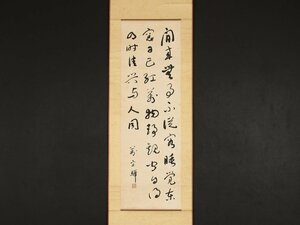 閒来無事不従容睡覚東
窓日已紅万物静観皆自得
四时佳興与人同